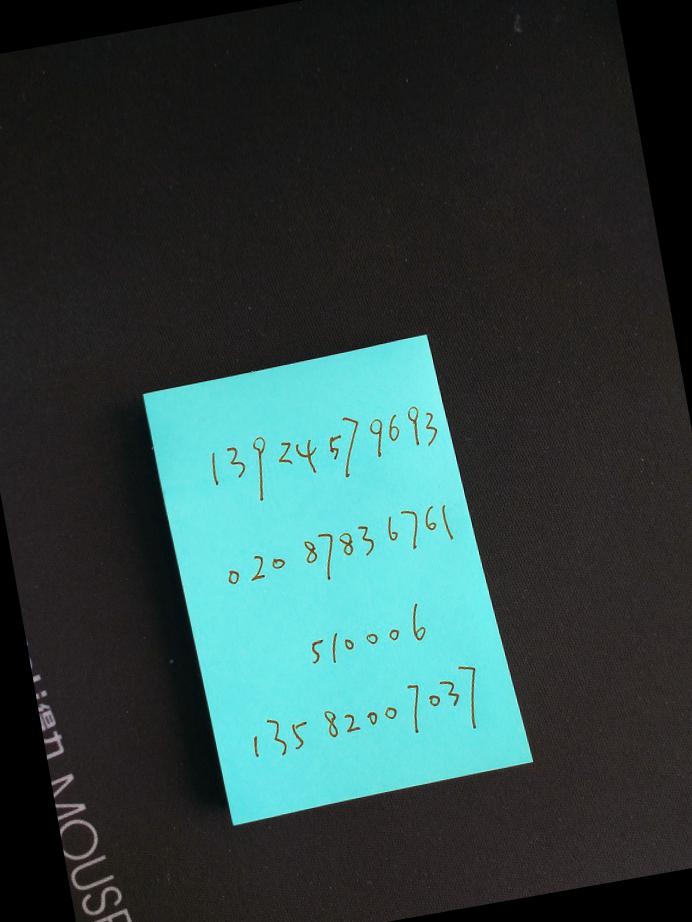 139 24579693
020 87836761
510006
13582007037
得力 MOUSE